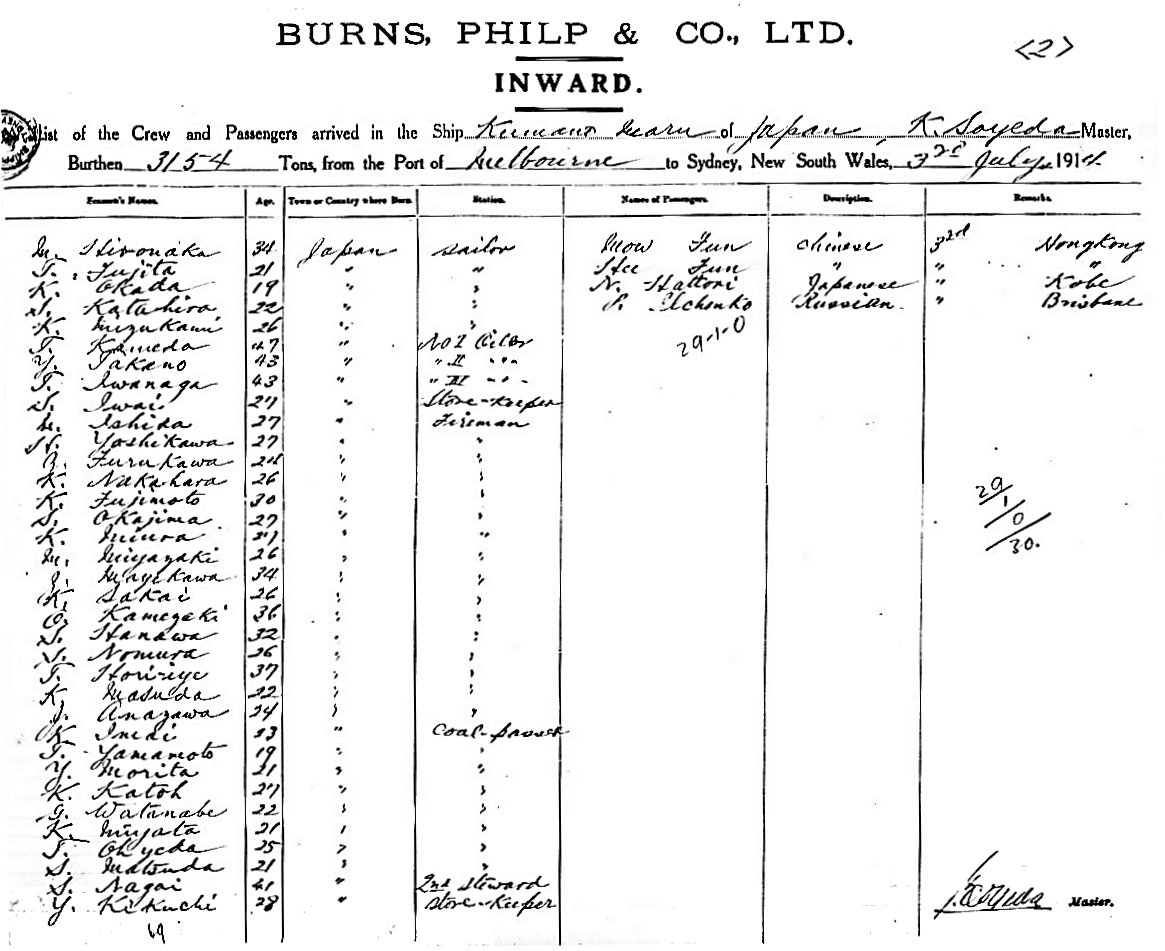 BURNS, PHILP & CO., LTD.
<2>
INWARD.
List of the Crew and Passengers arrived in the Ship Kumano Maru of Japan, K. Soyeda Master,
Burthen 3154 Tons, from the Port of Melbourne to Sydney, New South Wales, 3rd July, 1914.
Seamen's Names. Age. Town or Country where Born. Station. Names of Passengers. Description. Remarks.
M. Hironaka 34 Japan Sailor Mow Fun Chinese 3rd Hongkong
T. Fujita 21 " " Hee Fun " " "
K. Okada 19 " " N. Hattori Japanese " Kobe
S. Katahira 22 " " P. Ilchenko Russian " Brisbane
K. Mizukami 26 " "
T. Kameda 47 " No I Oiler 29-1-0
Y. Takano 43 " " II " "
T. Iwanaga 43 " " III " "
S. Iwai 27 " Store-Keeper
M. Ishida 27 " Fireman
H. Yoshikawa 27 " "
Furukawa " "
K. Nakahara 26 " "
K. Fujimoto 30 " " 29/
S. Okajima 27 " " 1/
K. Miura 27 " " 0/
M. Miyazaki 26 " " 30.
Mayekawa 34 " "
K. Sakai 26 " "
O. Kamezaki 36 " "
S. Hanawa 32 " "
S. Nomura 26 " "
T. Horiiye 37 " "
K. Masuda 22 " "
Anazawa 24 " "
K. Imai " Coal-passer
T. Yamamoto 19 " "
Y. Morita 21 " "
K. Katoh 27 " "
G. Watanabe 22 " "
K. Miyata 21 " "
T. Ohyeda 25 " "
S. Matsuda 21 " "
S. Nagai 41 " 2nd Steward
Y. Kikuchi 28 " Store-Keeper Soyeda Master.
69